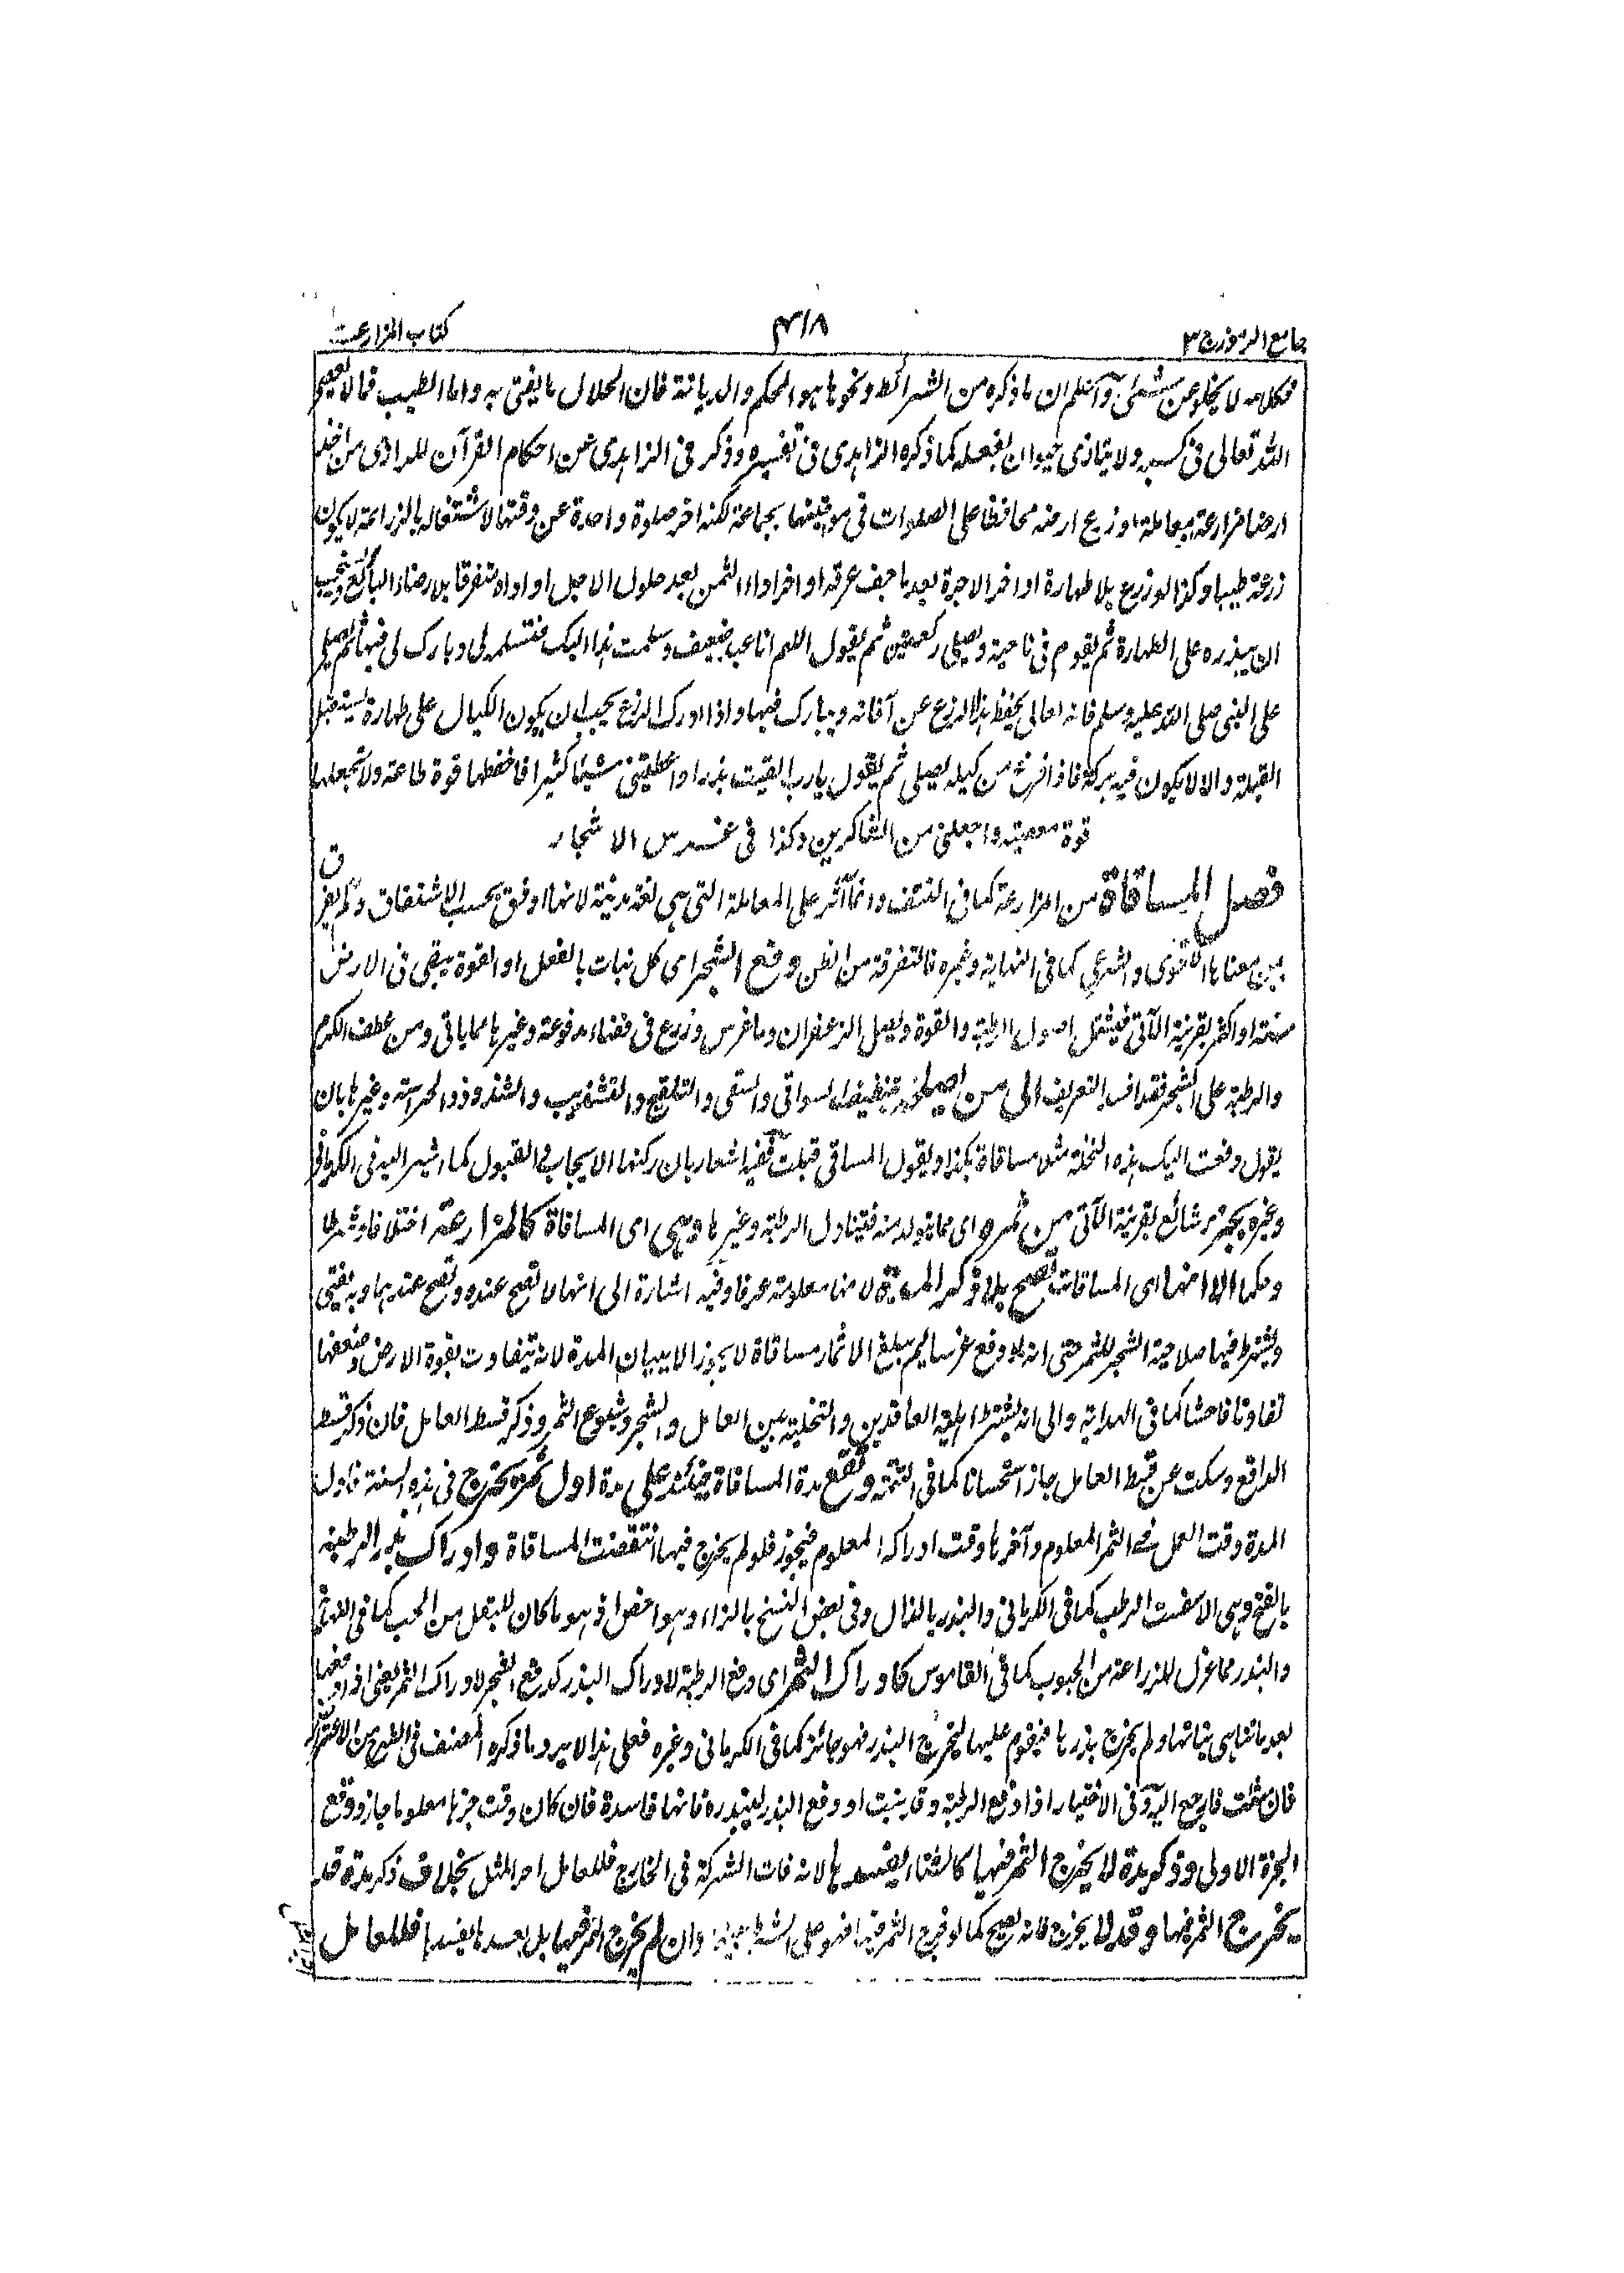 جامع الرموز ج ٣
٤١٨
كتاب المزارعت
فكلامه لا يخلو عن شئ واعلم ان ما ذكره من الشرائط ونحوها هو الحكم والديانة فان الحلال ما يفتى به واما الطيب فما لا يعصى
الله تعالى فى كسبه ولا يتاذى حيوان بفعله كما ذكره الزاهدى فى تفسيره وذكر فى الزاهدى عن احكام القرآن للرازى من اخذ
ارضا مزارعة معاملة او زرع ارضه محافظا على الصلوات فى مواقيتها بجماعة لكنه اخر صلوة واحدة عن وقتها لاشتغاله بالزراعة لا يكون
زرعه طيبا وكذا لو زرع بلا طهارة او اخر الاجرة بعد ما جف عرقه او اخر اداء الثمن بعد حلول الاجل او اداه متفرقا بلا رضاء البائع ويجب
ان يبذره على الطهارة ثم يقوم فى ناحية ويصلى ركعتين ثم يقول اللهم انا عبد ضعيف وسلمت هذا اليك فتسلمه لى وبارك لى فيها ثم يصلى
على النبى صلى الله عليه وسلم فانه تعالى يحفظ هذا الزرع عن آفاته ويبارك فيها واذا ادرك الزرع يجب ان يكون الكيال على طهارة يستقبل
القبلة والا لا يكون فيه بركة فاذا فرغ من كيله يصلى ثم يقول يا رب القيت بذرا واعطيتنى شيئا كثيرا فاحفظها قوة طاعة ولا تجعلها
قوة معصية واجعلنى من الشاكرين وكذا فى غرس الاشجار
فصل المساقاة من المزارعة كما فى النتف وانما آثر على المعاملة التى هى لغة مدنية لانها اوفق بحسب الاشتقاق ولم يفرق
بين معناها اللغوى والشرعى كما فى النهاية وغيره فالتفرقة من الظن وقع الشجر اى كل نبات بالفعل او القوة يبقى فى الارض
سنة او اكثر بقرينة الآتى فيشمل اصول الرطبة والفوة وبصل الزعفران وما غرس وزرع فى فضاء مدفوعة وغيرها مما ياتى ومن عطف الكرم
والرطبة على الشجر فقد افسد التعريف الى من يصلحه بتنظيف السواقى والسقى والتلقيح والتشذيب والحراسة وغيرها بان
يقول دفعت اليك هذه النخلة مثلا مساقاة بكذا ويقول المساقى قبلت ففيه اشعار بان ركنها الايجاب والقبول كما اشير اليه فى الكرمانى
وغيره بجزء شائع بقرينة الآتى من ثمره اى مما يتولد منه فيتناول الرطبة وغيرها وهى اى المساقاة كالمزارعة اختلافا وشرطا
وحكما الا انها اى المساقاة تصح بلا ذكر المدة لانها معلومة عرفا وفيه اشارة الى انها لا تصح عنده وتصح عندهما وبه يفتى
ويشترط فيها صلاحية الشجر للثمر حتى انه لو دفع غرسا لم يبلغ الاثمار مساقاة لا يجوز الا ببيان المدة لانه يتفاوت بقوة الارض وضعفها
تفاوتا فاحشا كما فى الهداية والى انه يشترط اهلية العاقدين والتخلية بين العامل والشجر وشيوع الثمر وذكر قسط العامل فان ذكر قسط
الدافع وسكت عن قسط العامل جاز استحسانا كما فى التتمة وتقع مدة المساقاة حينئذ على مدة اول ثمرة تخرج فى هذه السنة فاول
المدة وقت العمل فى الثمر المعلوم وآخرها وقت ادراكه المعلوم فيجوز فلو لم يخرج فيها انتقضت المساقاة وادراك بذر الرطبة
بالفتح وهى الاسفست الرطب كما فى الكرمانى والبذر بالذال وفى بعض النسخ بالزاء وهو اخص اذ هو ما كان للبقل من الحب كما فى
والبذر مما عزل للزراعة من الحبوب كما فى القاموس كادراك الثمر اى دفع الرطبة لادراك البذر كدفع الشجر لادراك الثمر يعنى اذا دفعها
بعد ما تناهى نباتها ولم يخرج بذرها فيقوم عليها ليخرج البذر فهو جائز كما فى الكرمانى وغيره فعلى هذا لا يرد ما ذكره المصنف فى الشرح من الاعتراض
فان شئت فارجع اليه وفى الاختيار اذا دفع الرطبة وقد نبتت او دفع البذر ليبذره فانها فاسدة فان كان وقت جزها معلوما جاز ووقع
الجزة الاولى وذكر مدة لا يخرج الثمر فيها كالشتاء يفسدها لانه فات الشركة فى الخارج فللعامل اجر المثل بخلاف ذكر مدة قد
يخرج الثمر فيها وقد لا يخرج فانه يصح كما لو خرج الثمر فيها فهو على الشرط وان لم يخرج الثمر فيها بل بعدها يفسدها فللعامل